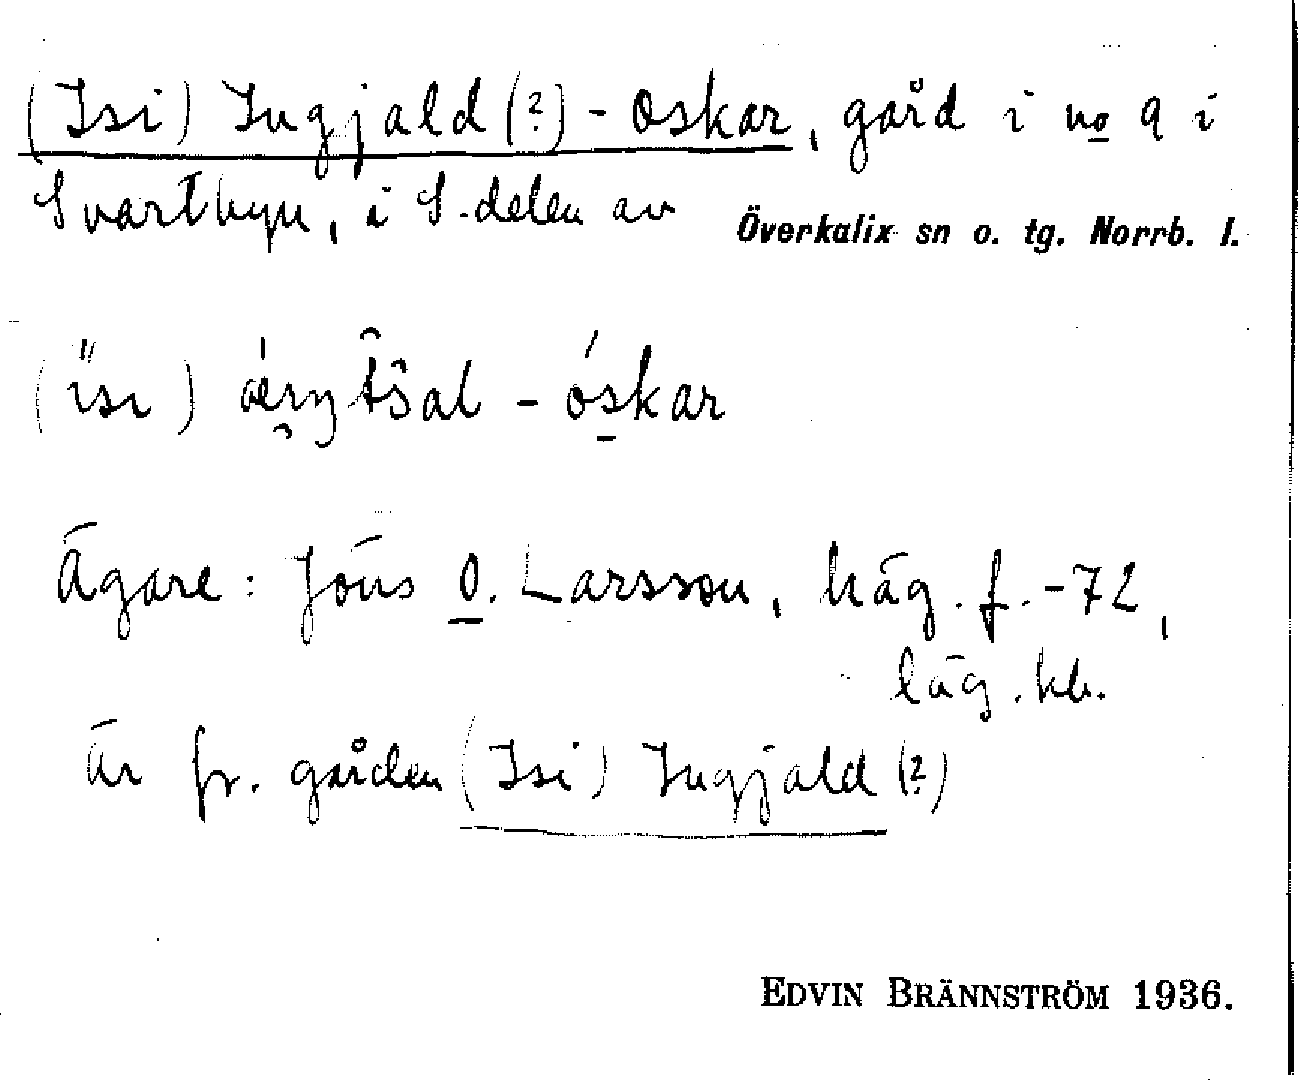 (Isi) Ingjald (?) - Oskar, gård i no 9 i
Svartbyn, i S-delen av Överkalix sn o. tg. Norrb. l.
(ısı) - óskar
Ägare: Jöns O. Larsson, häg. f. -72,
läg. kb.
Är fr. gården (Isi) Ingjald (?)
EDVIN BRÄNNSTRÖM 1936.